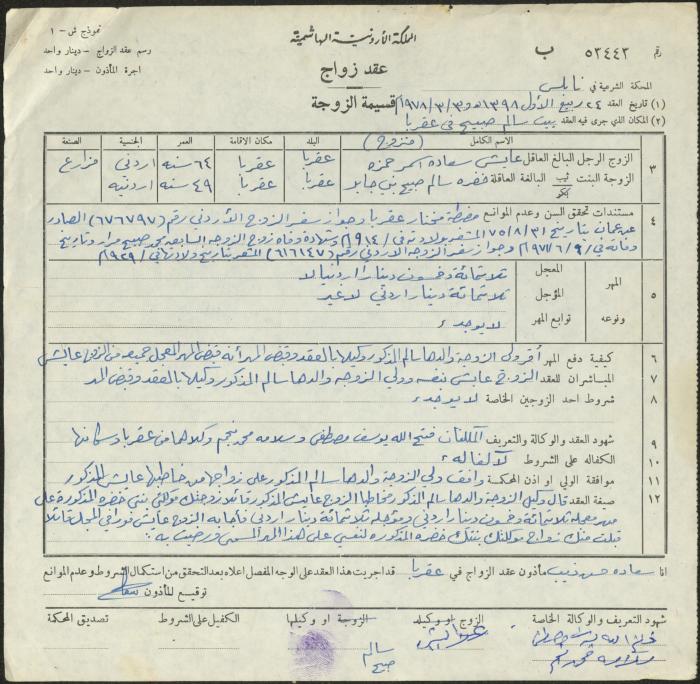 نموذج ش - ١
المملكة الأردنية الهاشمية
رسم عقد الزواج - دينار واحد
اجرة المأذون - دينار واحد
رقم ٥٣٤٤٣ ب
عقد زواج
المحكمة الشرعية في نابلس
(١) تاريخ العقد ٢٤ ربيع الأول ١٣٩٨هـ و ٣/٣/١٩٧٨م
قسيمة الزوجة
(٢) المكان الذي جرى فيه العقد بيت سالم صبيح في عقربا
الاسم الكامل (متزوج) البلد مكان الاقامة العمر الجنسية الصنعة
٣ الزوج الرجل البالغ العاقل عايش سعاده حمزه عقربا عقربا ٦٤ سنه اردني مزارع
الزوجة البنت ثيب بكر البالغة العاقلة خضره سالم صبيح بني جابر عقربا عقربا ٤٩ سنه اردنية
٤ مستندات تحقق السن وعدم الموانع مضبطة مختار عقربا وجواز سفر الزوج الأردني رقم (٦٧٦٧٩٧) الصادر
عن عمان بتاريخ ٧٥/٨/٣١ المشعر بولادته في ١٩١٤ وشهادة وفاة زوج الزوجه السابق محمد صبيح مراد وتاريخ
وفاته في ١٩٧١/٦/٩ وجواز سفر الزوجه الاردني رقم (٦١٦١٤٧) المشعر بتاريخ ولادتها في ١٩٢٩
٥ المهر ونوعه
المعجل ثلاثماية وخمسون دينارا اردنيا لا
المؤجل ثلاثماية دينار اردني لا غير
توابع المهر لا يوجد
٦ كيفية دفع المهر أقر ولي الزوجة والدها سالم المذكور وكيلها بالعقد وقبض المهر أنه قبض المهر المعجل جميعه من الزوج عايش
٧ المباشران للعقد الزوج عايش بنفسه وولي الزوجه والدها سالم المذكور وكيلها بالعقد وقبض المهر
٨ شروط احد الزوجين الخاصة لا يوجد
٩ شهود العقد والوكالة والتعريف المكلفان فتح الله يوسف مصطفى وسلامه محمد نجم وكلاهما من عقربا وسكانها
١٠ الكفاله على الشروط لا كفاله
١١ موافقة الولي او اذن المحكمة وافق ولي الزوجة والدها سالم المذكور على زواجها من خاطبها عايش المذكور
١٢ صفة العقد قال وكيل الزوجة والدها سالم المذكور مخاطبا الزوج عايش المذكور قائلا زوجتك موكلتي بنتي خضره المذكورة على
مهر معجله ثلاثماية وخمسون دينار اردني ومؤجله ثلاثماية دينار اردني فأجابه الزوج عايش فورا في المجلس قائلا
قبلت منك زواج موكلتك بنتك خضره المذكوره لنفسي على هذا المهر المسمى ورضيت به
انا سعاده حسن ذيب مأذون عقد الزواج في عقربا قد اجريت هذا العقد على الوجه المفصل اعلاه بعد التحقق من استكمال الشروط وعدم الموانع
توقيع المأذون
شهود التعريف والوكالة الخاصة الزوج او وكيله الزوجة او وكيلها الكفيل على الشروط تصديق المحكمة
سالم
صبيح